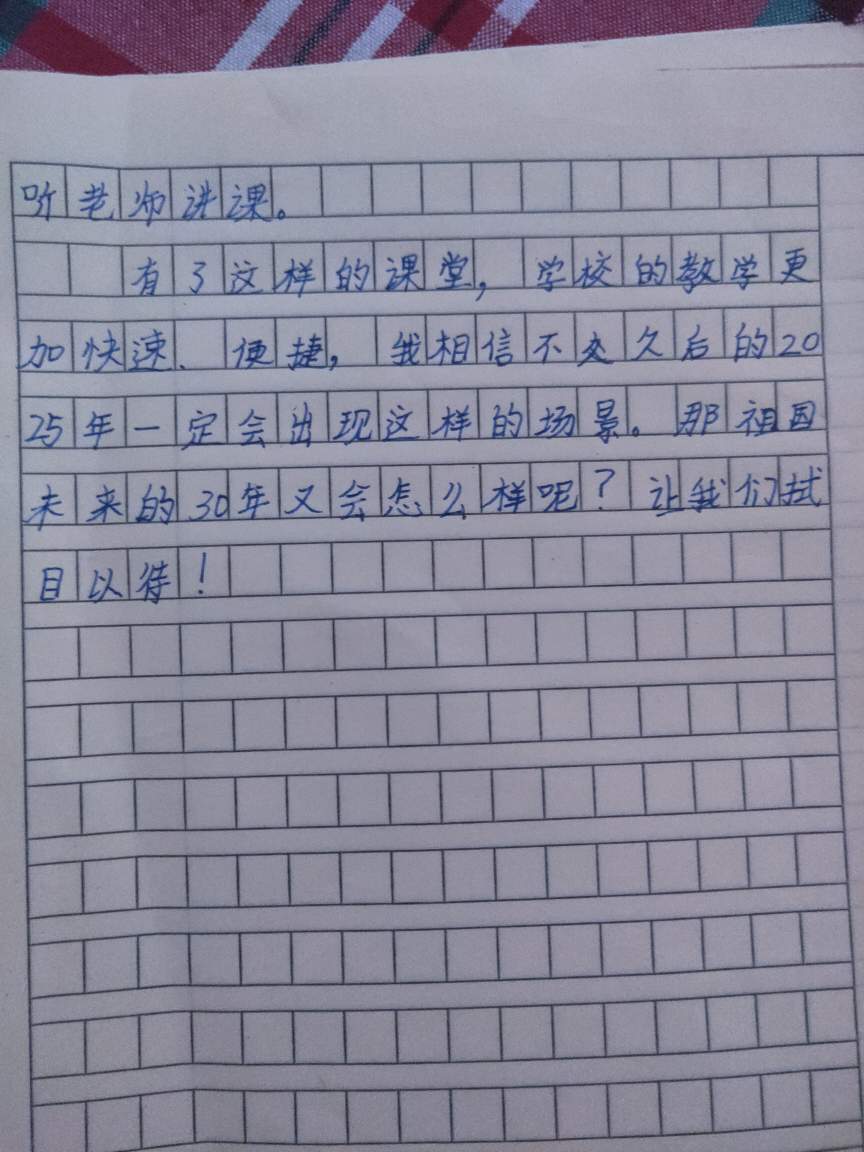 听老师讲课。
有了这样的课堂，学校的教学更
加快速、便捷，我相信不久后的20
25年一定会出现这样的场景。那祖国
未来的30年又会怎么样呢？让我们拭
目以待！